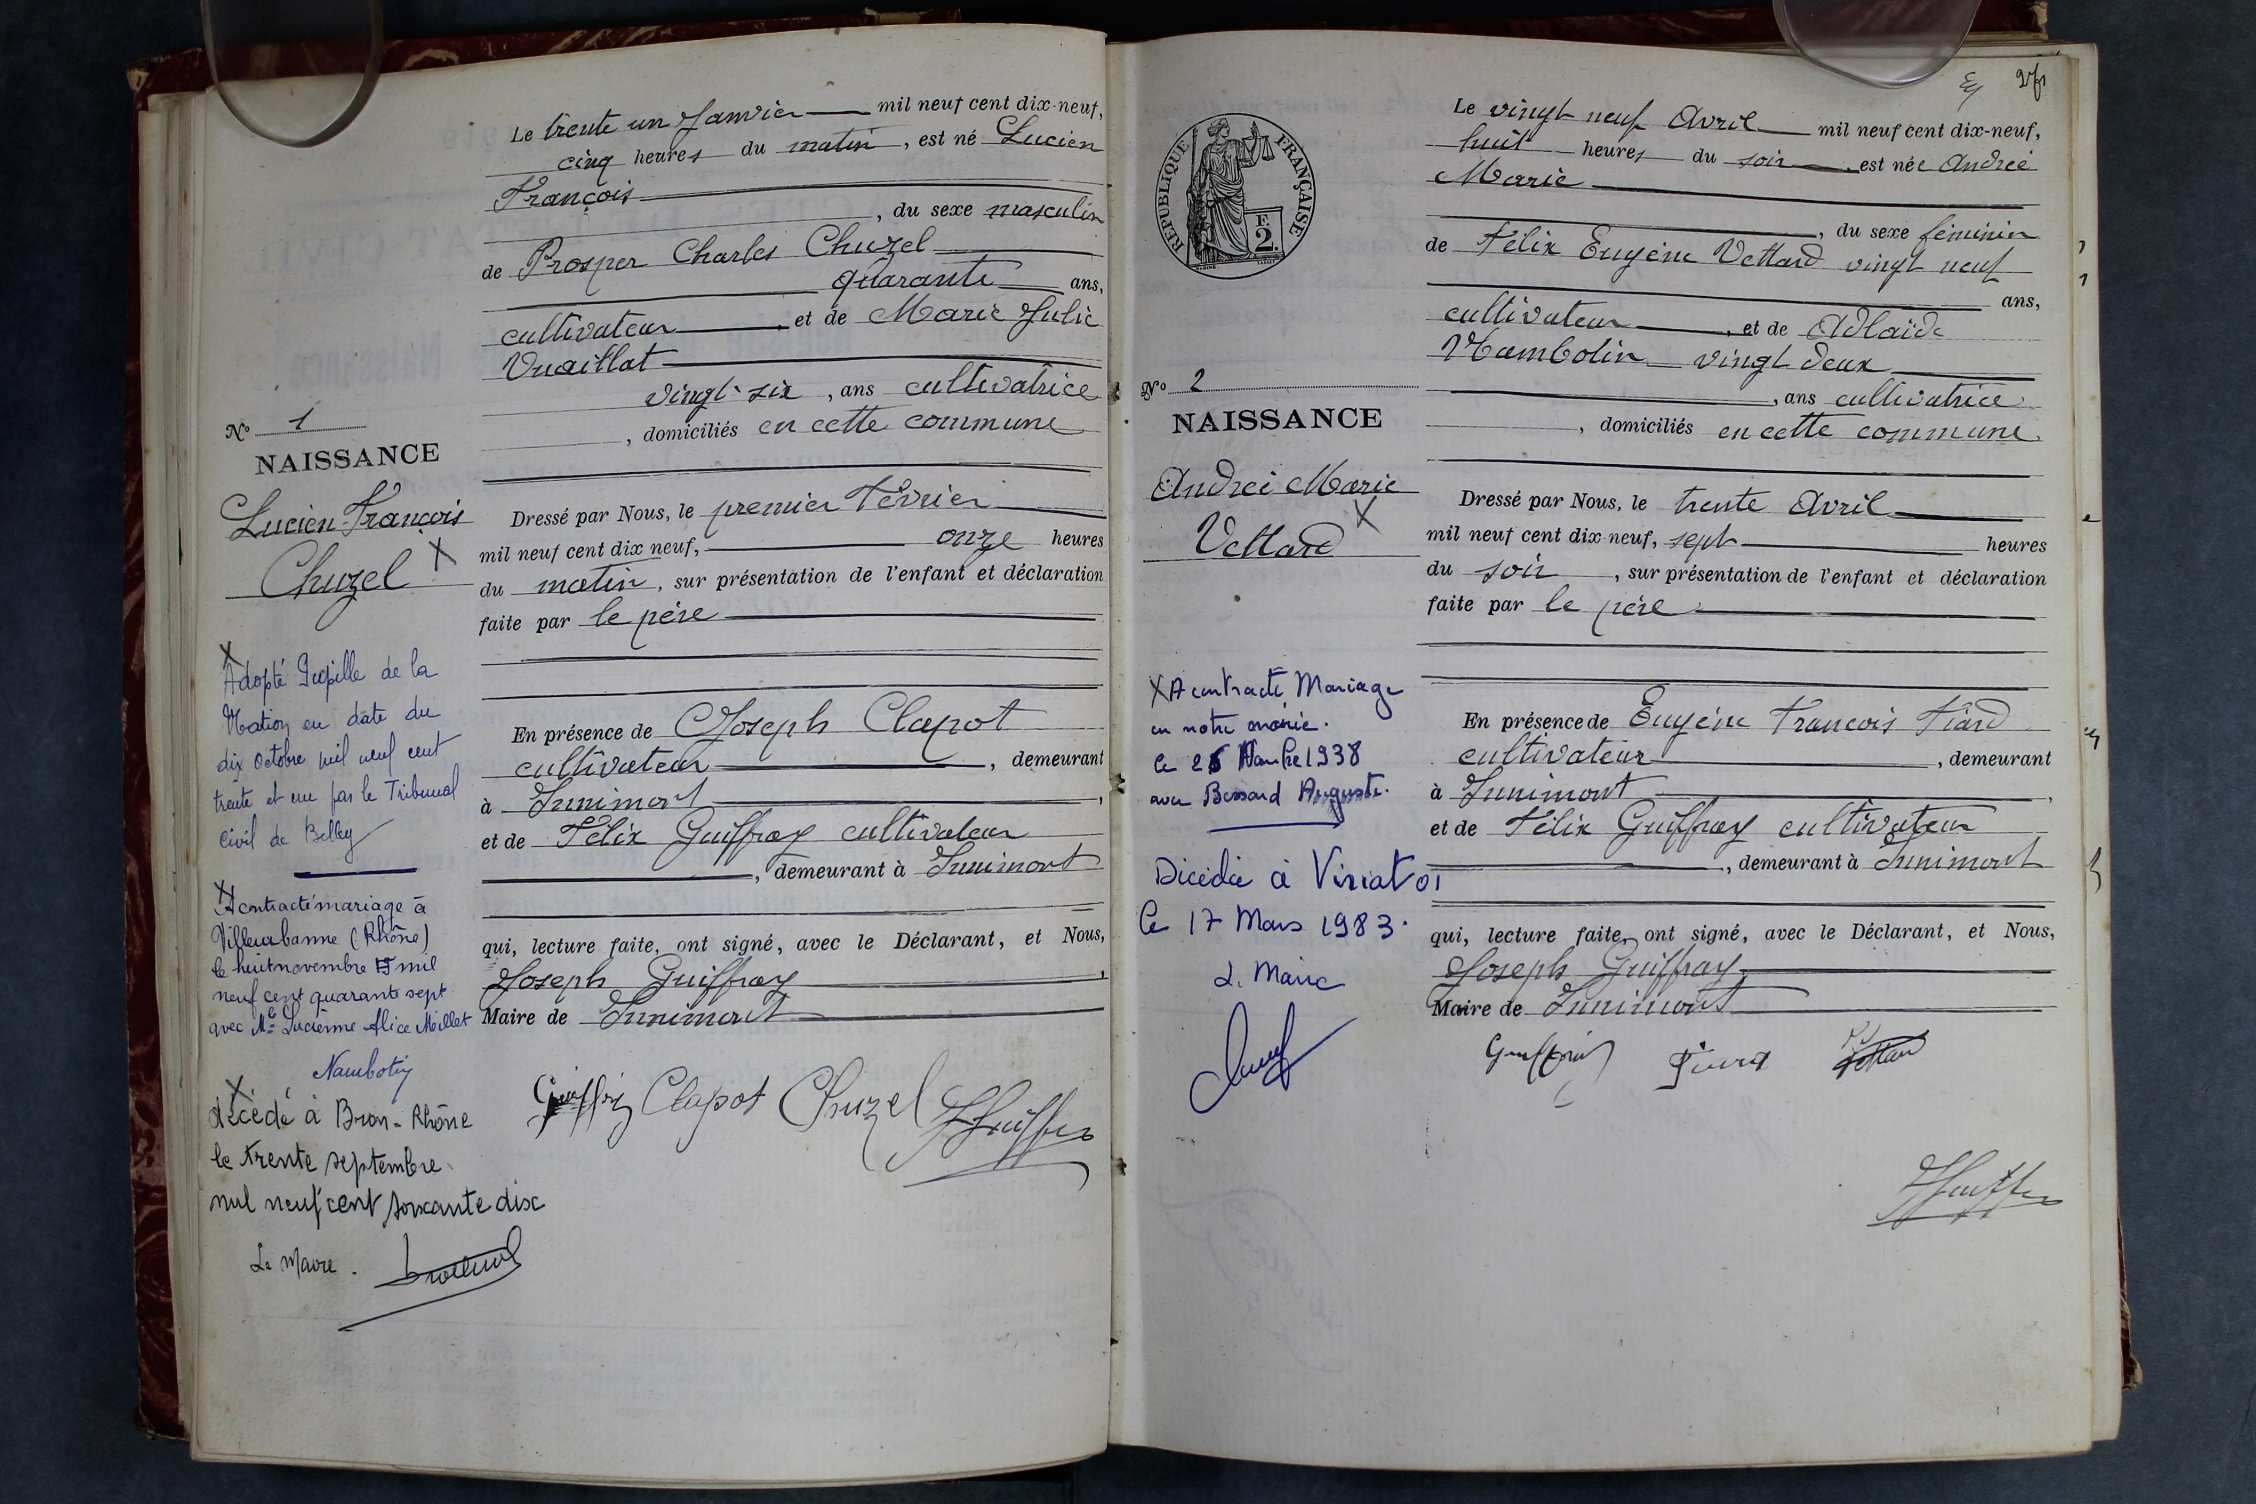 Le trente un Janvier mil neuf cent dix-neuf,
cinq heures du matin, est né Lucien
François
, du sexe masculin
de Prosper Charles Chuzel
quarante ans,
cultivateur, et de Marie Julie
Vuaillat
vingt-six, ans cultivatrice
, domiciliés en cette commune
N° 1
NAISSANCE
Lucien-François
Chuzel X
Dressé par Nous, le premier Février
mil neuf cent dix neuf, onze heures
du matin, sur présentation de l'enfant et déclaration
faite par le père
En présence de Joseph Clapot
cultivateur, demeurant
à Innimont,
et de Félix Guiffray cultivateur
, demeurant à Innimont
qui, lecture faite, ont signé, avec le Déclarant, et Nous,
Joseph Guiffray,
Maire de Innimont
Clapot Chuzel
X
Adopté Pupille de la
Nation en date du
dix octobre mil neuf cent
trente et un par le Tribunal
civil de Belley
X
A contracté mariage à
Villeurbanne (Rhône)
le huit novembre mil
neuf cent quarante sept
avec Mlle Lucienne Alice Millet
Nambotin
X
décédé à Bron-Rhône
le trente septembre
mil neuf cent soixante dix
Le Maire.
27
RÉPUBLIQUE FRANÇAISE
F.
2.
Le vingt neuf Avril mil neuf cent dix-neuf,
huit heures du soir, est née Andrée
Marie
, du sexe féminin
de Félix Eugène Vettard vingt neuf
ans,
cultivateur, et de Adlaïde
Nambotin vingt deux
, ans cultivatrice
, domiciliés en cette commune
N° 2
NAISSANCE
Andrée Marie
X
Vettard
Dressé par Nous, le trente Avril
mil neuf cent dix-neuf, sept heures
du soir, sur présentation de l'enfant et déclaration
faite par le père
En présence de Eugène François Fiard
cultivateur, demeurant
à Innimont,
et de Félix Guiffray cultivateur
, demeurant à Innimont
qui, lecture faite, ont signé, avec le Déclarant, et Nous,
Joseph Guiffray
Maire de Innimont
X A contracté Mariage
en notre mairie.
le 26 Novembre 1938
avec Bessard Auguste.
Décédée à Viriat 01
le 17 Mars 1983.
L. Maire